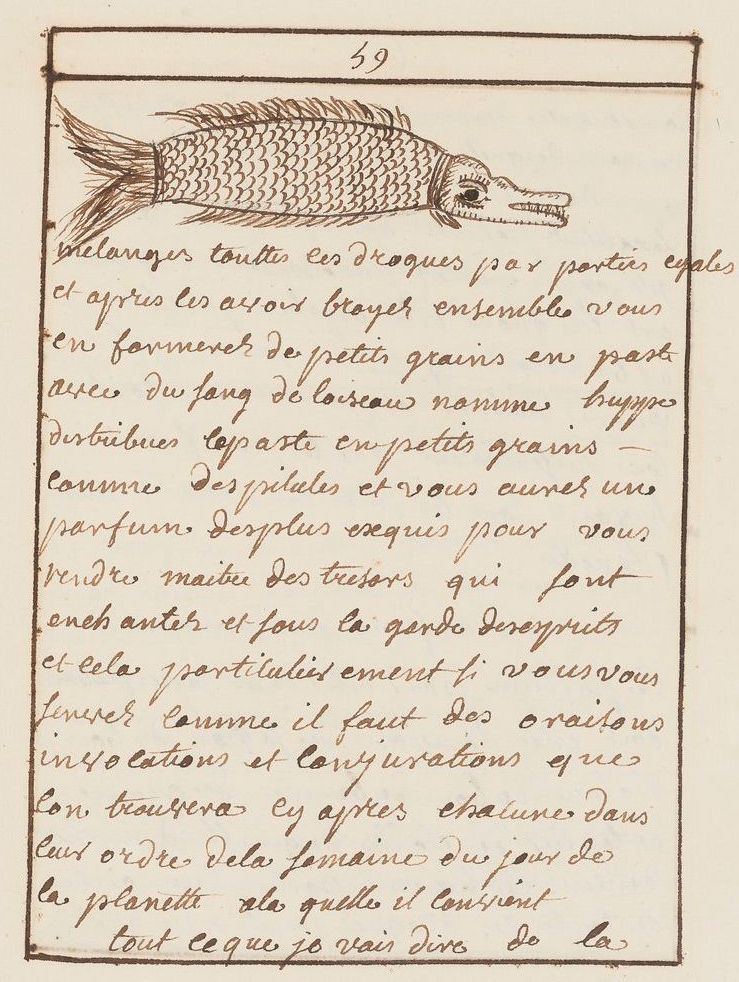 59
melanges touttes ces drogues par parties egales
et apres les avoir broyez ensemble vous
en formerez de petits grains en paste
avec du sang de loiseau nomme huppe
distribues lepaste en petits grains —
comme des pilules et vous aurez un
parfum desplus exquis pour vous
rendre maitre des tresors qui sont
enchantez et sous la garde desesprits
et cela particulierement si vous vous
servez comme il faut des oraisons
invocations et conjurations que
lon trouvera cy apres chacune dans
leur ordre dela semaine du jour de
la planette ala quelle il convient
tout ce que je vais dire de la